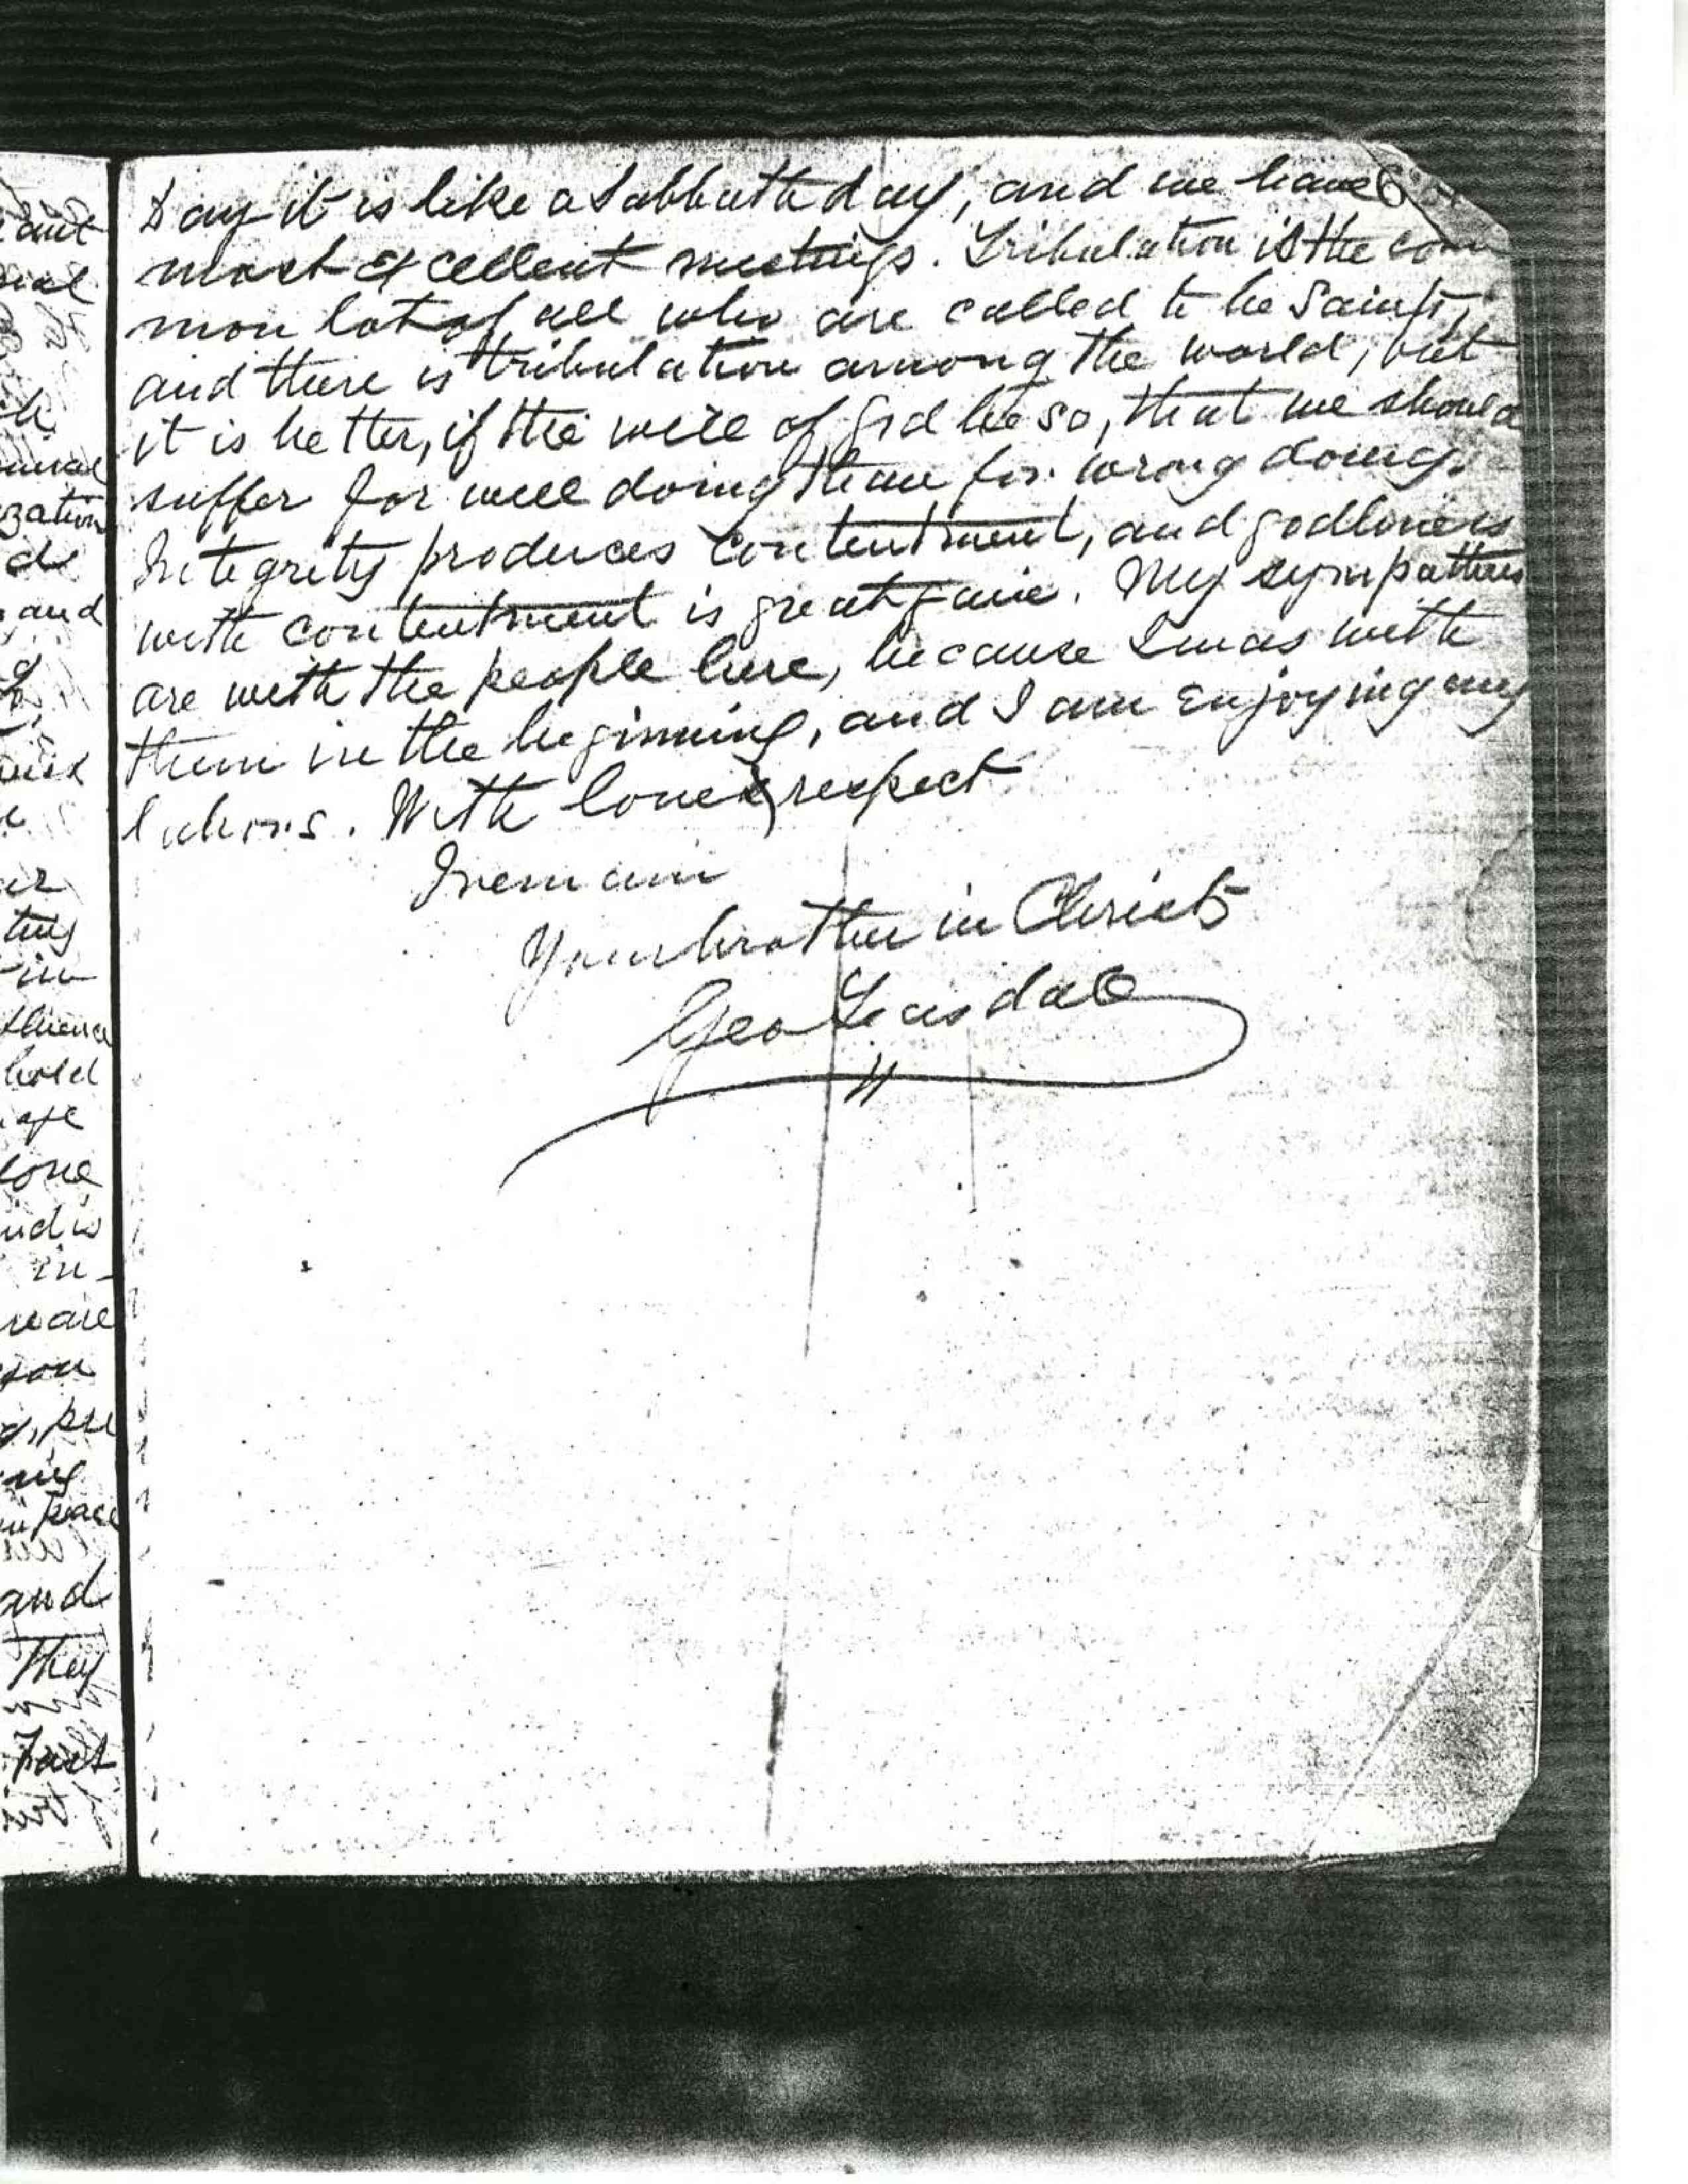 Day it is like a Sabbath day, and we have
most excellent meetings. Tribulation is the com
mon lot of all who are called to be Saints,
and there is tribulation among the world, but
it is better, if the will of God be so, that we should
suffer for well doing than for wrong doing.
Integrity produces contentment, and godliness
with contentment is great gain. My sympathies
are with the people here, because I was with
them in the beginning, and I am enjoying my
labors. With love & respect
I remain
Your brother in Christ
Geo Teasdale
ant
zation
de
and
hold
age
love
ud is
in-
you
ing
peace
and
They
Fast